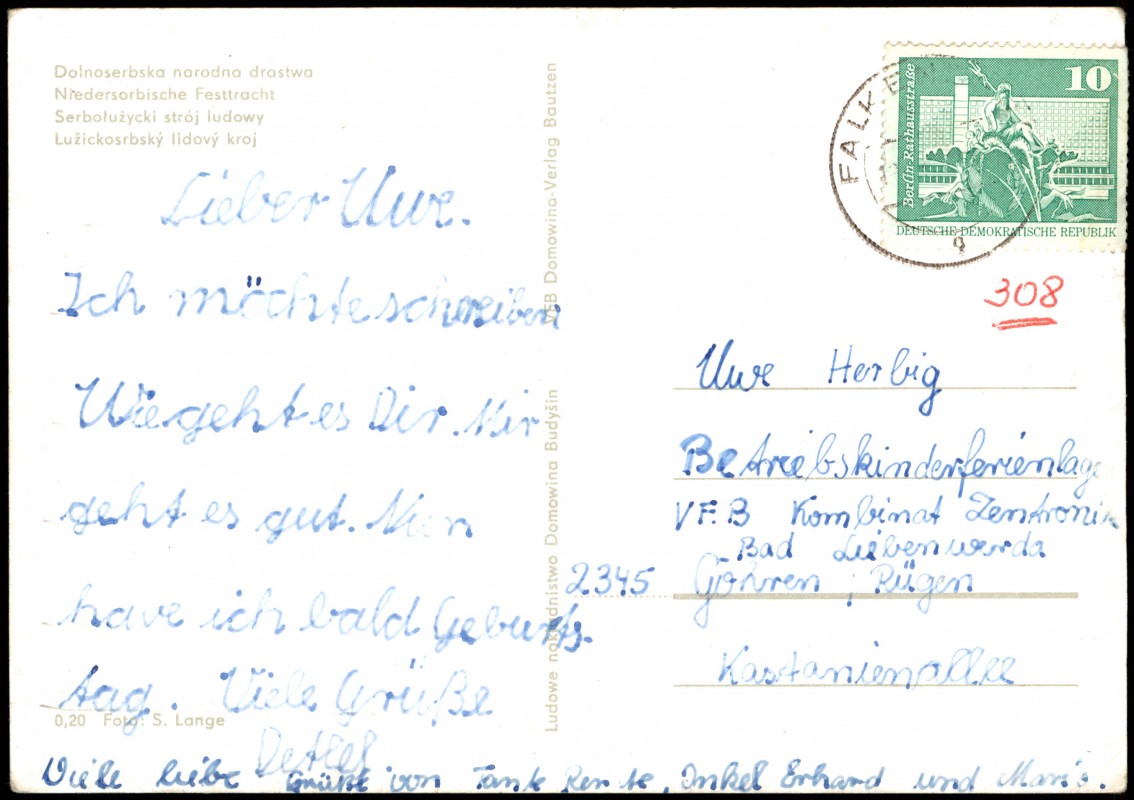 Dolnoserbska narodna drastwa
Niedersorbische Festtracht
Serbołużycki strój ludowy
Łužickosrbský lidový kroj
Lieber Uwe.
Ich möchte schreiben
Wie geht es Dir. Mir
geht es gut.
have ich bald Geburts-
tag. Viele Grüße
Detlef
0,20 Foto: S. Lange
Viele liebe Grüße von Tante Renate, Onkel Erhard und Mario.
Ludowe nakładnistwo Domowina Budyšin
VEB Domowina-Verlag Bautzen
FALKEN
g
10
Berlin-Rathausstraße
DEUTSCHE DEMOKRATISCHE REPUBLIK
308
Uwe Herbig
Betriebskinderferienlage
VEB Kombinat Zentronik
Bad Liebenwerda
2345 Göhren, Rügen
Kastanienallee